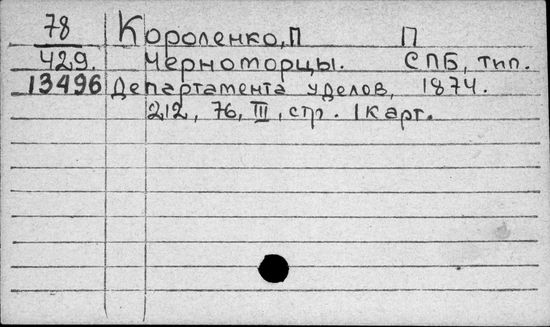 78 Короленко, П П
429. Черноторцы. СПБ, тип.
13496 Департамента уделов, 1874.
212, 76, III, стр. 1 карт.